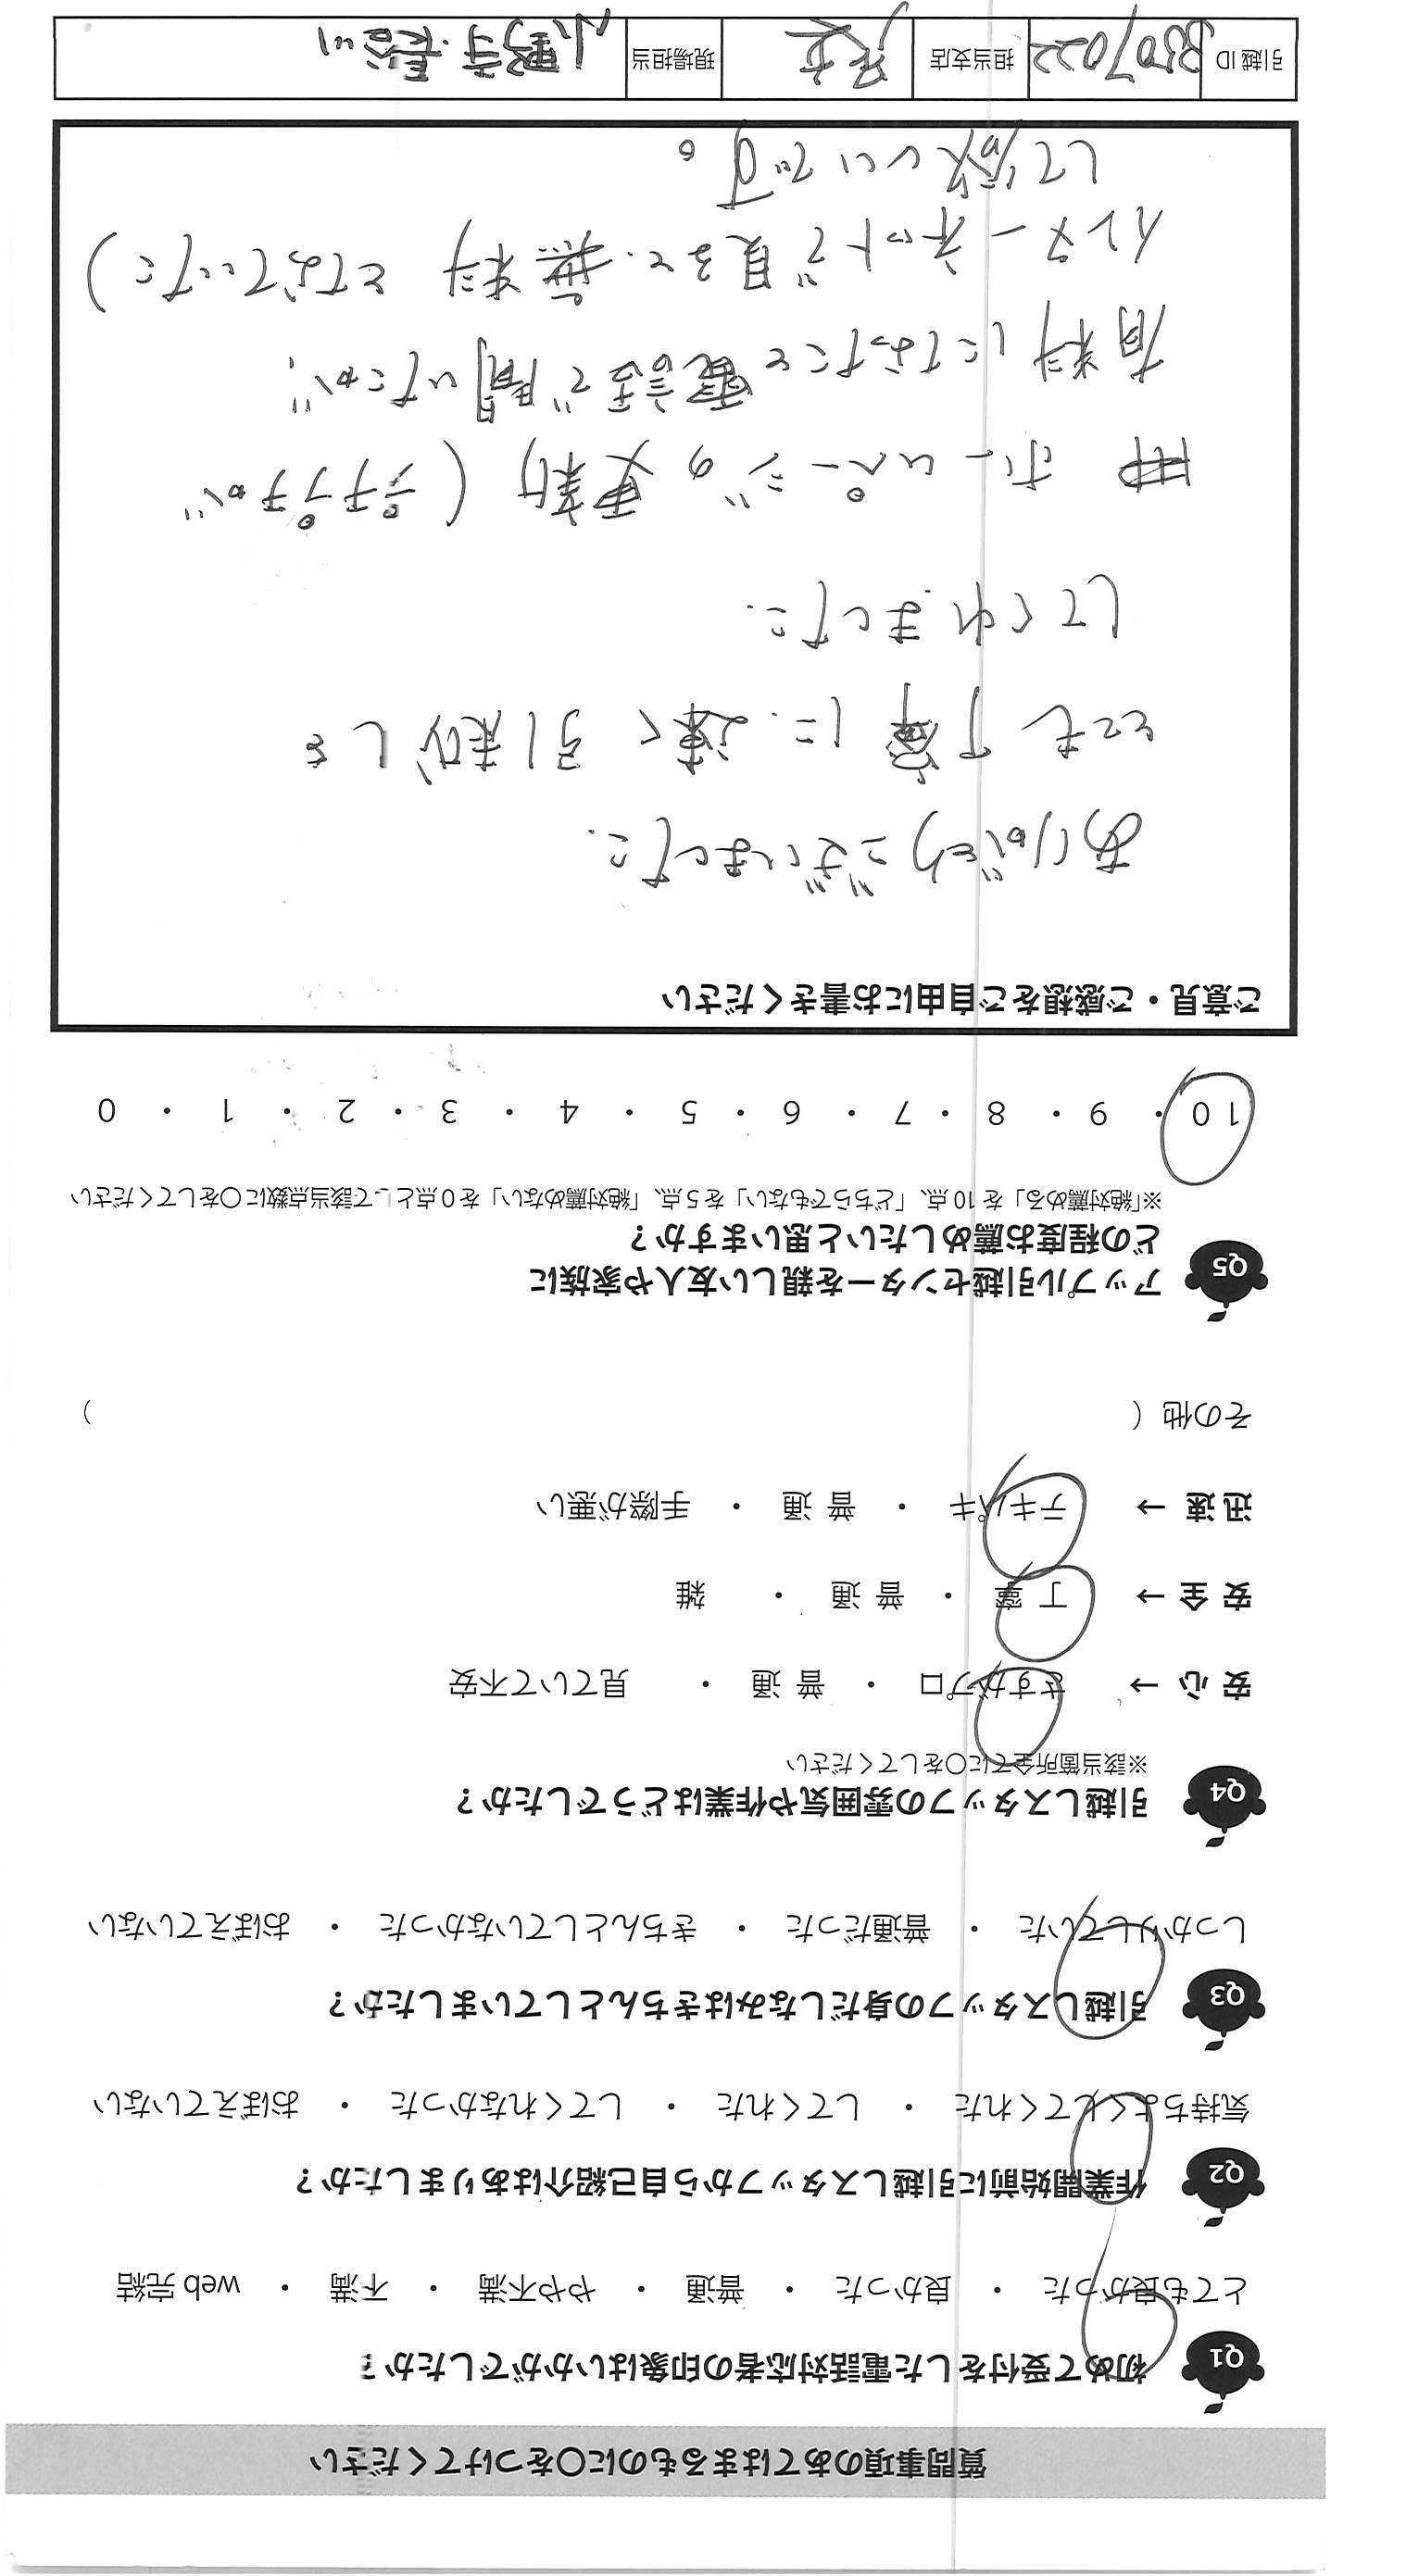 質問事項のあてはまるものに〇をつけてください
Q1 初めて受付をした電話対応者の印象はいかがでしたか？
とても良かった ・ 良かった ・ 普通 ・ やや不満 ・ 不満 ・ web 完結
Q2 作業開始前に引越しスタッフから自己紹介はありましたか？
気持ちよくしてくれた ・ してくれた ・ してくれなかった ・ おぼえていない
Q3 引越しスタッフの身だしなみはきちんとしていましたか？
しっかりしていた ・ 普通だった ・ きちんとしていなかった ・ おぼえていない
Q4 引越しスタッフの雰囲気や作業はどうでしたか？
※該当箇所全てに〇をしてください
安 心 → さすがプロ ・ 普 通 ・ 見ていて不安
安 全 → 丁 寧 ・ 普 通 ・ 雑
迅 速 → テキパキ ・ 普 通 ・ 手際が悪い
その他（ ）
Q5 アップル引越センターを親しい友人や家族に
どの程度お薦めしたいと思いますか？
※「絶対薦める」を 10 点、「どちらでもない」を 5 点、「絶対薦めない」を 0 点として該当点数に〇をしてください
10 ・ 9 ・ 8 ・ 7 ・ 6 ・ 5 ・ 4 ・ 3 ・ 2 ・ 1 ・ 0
ご意見・ご感想をご自由にお書きください
ありがとうございました.
とても丁寧に.速く 引越しを
してくれました.
ホームページの更新 (プチプチが
有料になったこと電話で聞いたが、
インターネットで見ると.無料 となっていた)
して欲しいです。
引越 ID 3507022 担当支店 現場担当 小野寺.長谷川